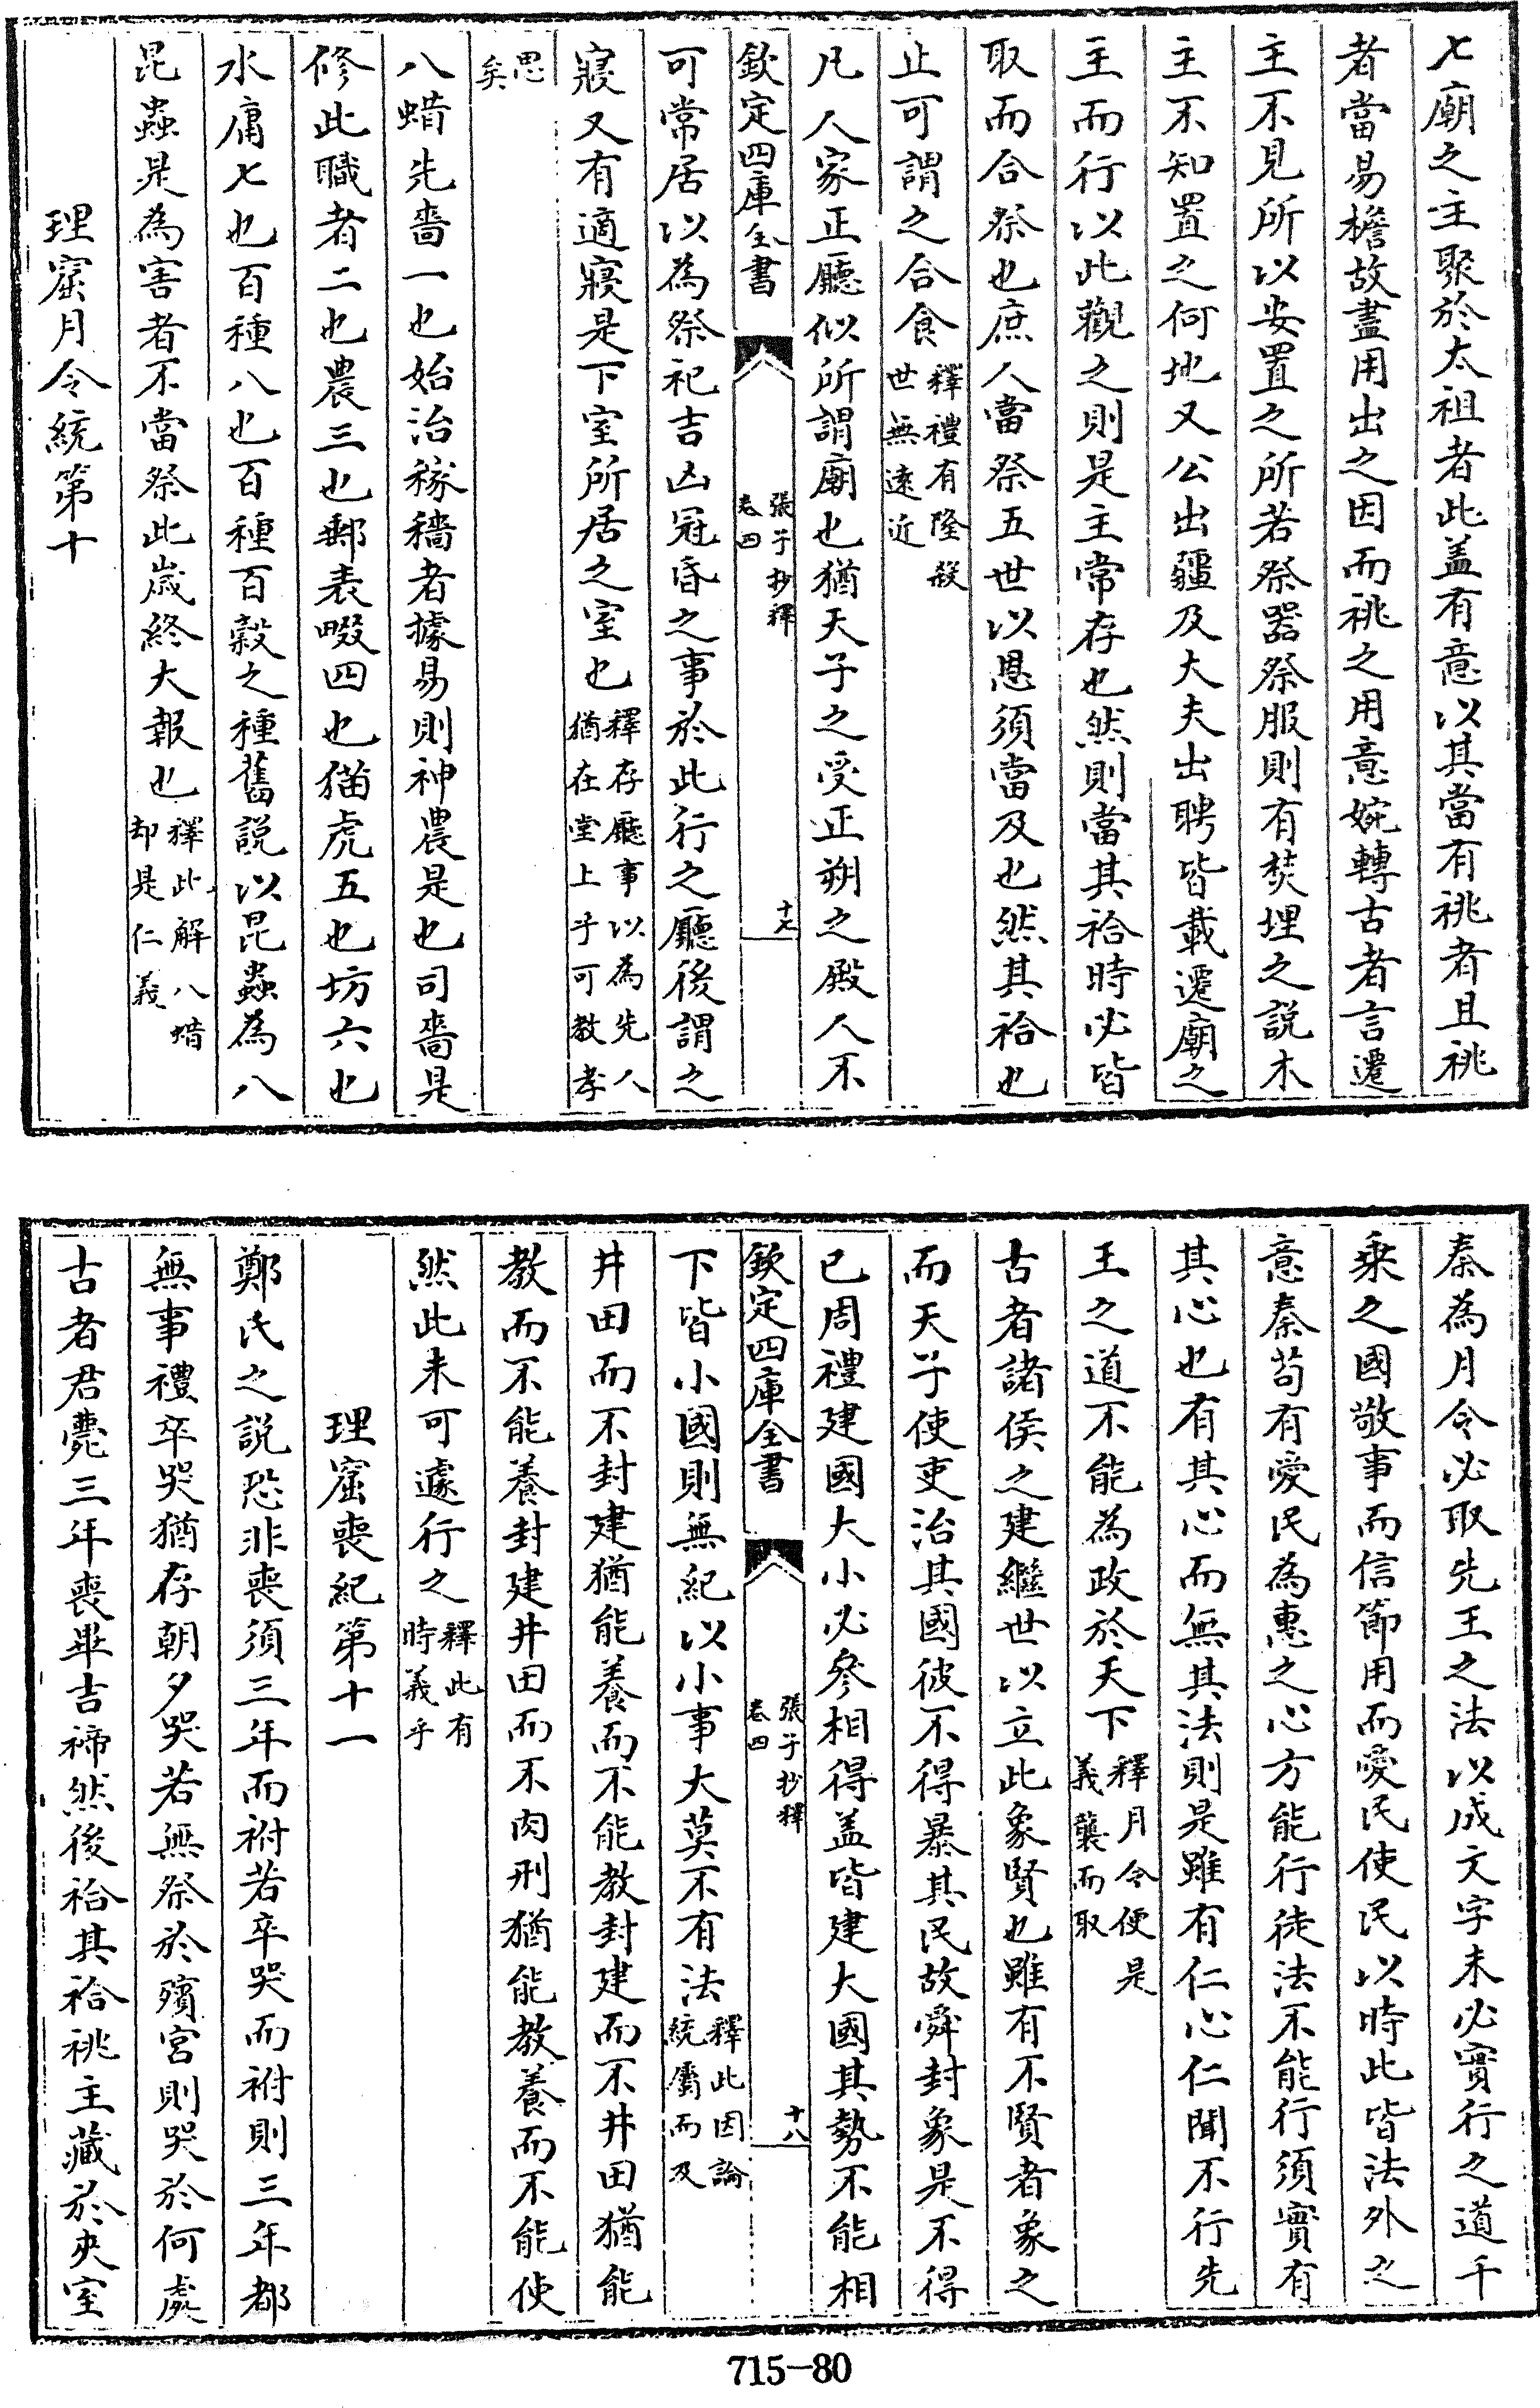 七廟之主聚於太祖者此盖有意以其當有祧者且祧
者當易檐故盡用出之因而祧之用意婉轉古者言遷
主不見所以安置之所若祭器祭服則有焚埋之説木
主不知置之何地又公出疆及大夫出聘皆載遷廟之
主而行以此觀之則是主常存也然則當其祫時必皆
取而合祭也庶人當祭五世以恩須當及也然其祫也
止可謂之合食釋禮有隆殺世無遠近
凡人家正廳似所謂廟也猶天子之受正朔之殿人不
欽定四庫全書 張子抄釋 卷四 十七
可常居以為祭祀吉凶冠昏之事於此行之廳後謂之
寢又有適寢是下室所居之室也釋存廳事以為先人猶在堂上乎可教孝
思矣
八蜡先嗇一也始治稼穡者據易則神農是也司嗇是
修此職者二也農三也郵表畷四也猫虎五也坊六也
水庸七也百種八也百種百穀之種舊説以昆蟲為八
昆蟲是為害者不當祭此歲終大報也釋此解八蜡却是仁義
理窟月令統第十
秦為月令必取先王之法以成文字未必實行之道千
乘之國敬事而信節用而愛民使民以時此皆法外之
意秦苟有愛民為惠之心方能行徒法不能行須實有
其心也有其心而無其法則是雖有仁心仁聞不行先
王之道不能為政於天下釋月令便是義襲而取
古者諸侯之建繼世以立此象賢也雖有不賢者象之
而天子使吏治其國彼不得暴其民故舜封象是不得
已周禮建國大小必參相得盖皆建大國其勢不能相
欽定四庫全書 張子抄釋 卷四 十八
下皆小國則無紀以小事大莫不有法釋此因論統屬而及
井田而不封建猶能養而不能教封建而不井田猶能
教而不能養封建井田而不肉刑猶能教養而不能使
然此未可遽行之釋此有時義乎
理窟喪紀第十一
鄭氏之説恐非喪須三年而祔若卒哭而祔則三年都
無事禮卒哭猶存朝夕哭若無祭於殯宮則哭於何處
古者君薨三年喪畢吉禘然後祫其祫祧主藏於夾室
715-80